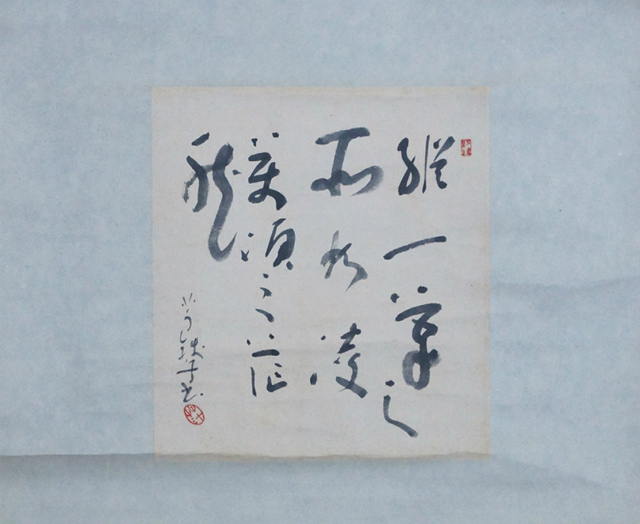 縱一葦之
所如凌
萬頃之茫
然